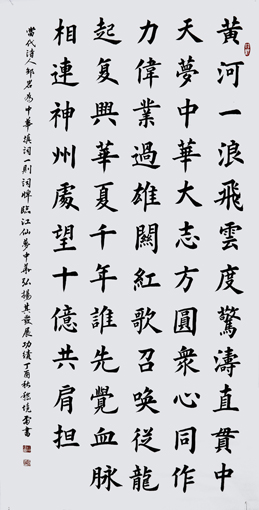 黄河一浪飛雲度驚濤直貫中
天夢中華大志方圓衆心同作
力偉業過雄關紅歌召喚從龍
起复興華夏千年誰先覺血脉
相連神州處望十億共肩担
當代詩人邹君為中華填詞一則詞牌臨江仙夢中華弘揚其發展功績丁酉秋書